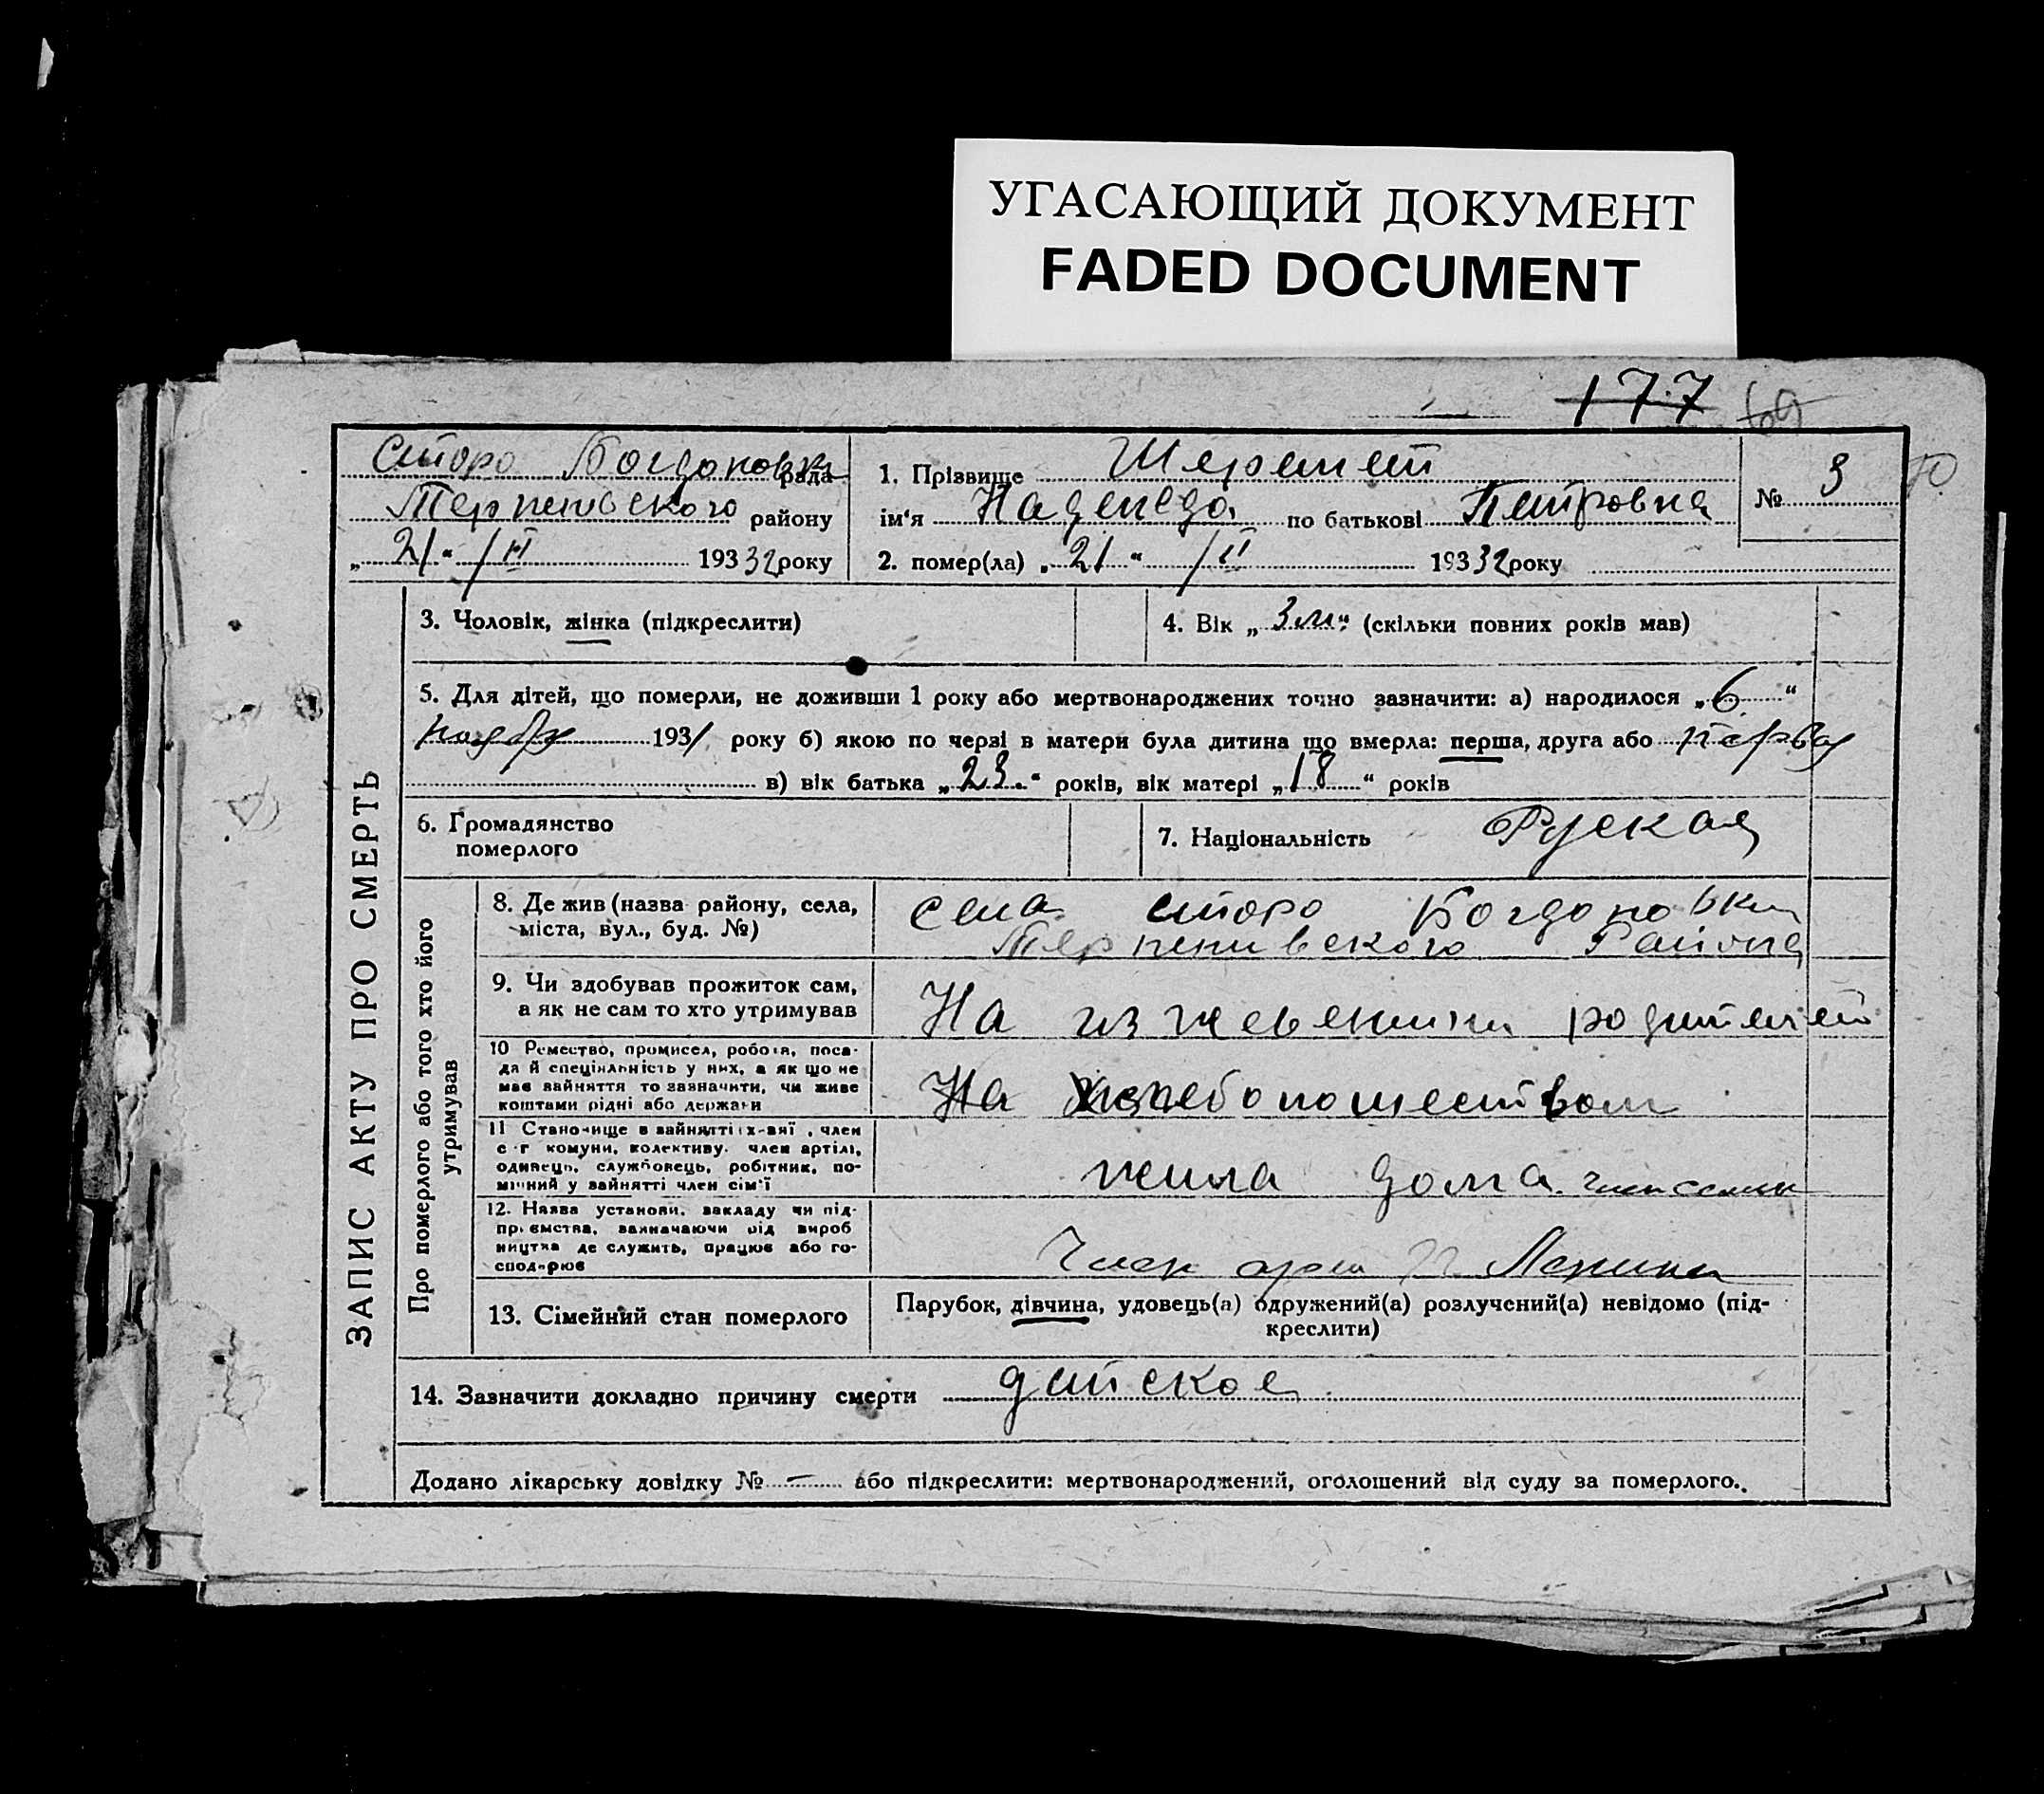 УГАСАЮЩИЙ ДОКУМЕНТ
FADED DOCUMENT
177 69
Старо Богдановка рада
Терпеновского району
„21“ /II 193 32 року
1. Прізвище Шеремет
ім‘я Надежда по батькові Петровна
№ 3
2. помер(ла) „21“ /II 193 32 року
3. Чоловік, жінка (підкреслити)
4. Вік „3 м“ (скільки повних років мав)
5. Для дітей, що померли, не доживши 1 року або мертвонароджених точно зазначити: а) народилося „6“
ноября 1931 року б) якою по черзі в матери була дитина що вмерла: перша, друга або первая
в) вік батька „23“ років, вік матері „18“ років
6. Громадянство
померлого
7. Національність Руская
ЗАПИС АКТУ ПРО СМЕРТЬ
Про померлого або того хто його
утримував
8. Де жив (назва району, села,
міста, вул., буд. №)
села старо Богдановки
Терпенивского Района
9. Чи здобував прожиток сам,
а як не сам то хто утримував
На изжевении родителей
10 Ремество, промисел, робота, поса-
да й спеціяльність у них, а як що не
має зайняття то зазначити, чи живе
коштами рідні або держави
На хлебопошеством
11 Становище в зайнятті х-вяї, член
с-г комуни, колективу. член артілі,
одинець, службовець, робітник, по-
мічний у зайнятті член сім‘ї
жила дома член семи
12. Назва установи, закладу чи під-
приємства, зазначаючи від вироб
ництва де служить, працює або го-
сподарює
Член арт Ленина
13. Сімейний стан померлого
Парубок, дівчина, удовець(а) одружений(а) розлучений(а) невідомо (під-
креслити)
14. Зазначити докладно причину смерти детское
Додано лікарську довідку № – або підкреслити: мертвонароджений, оголошений від суду за померлого.